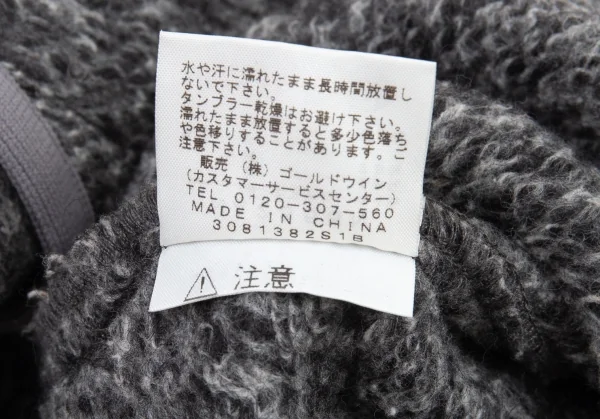 水や汗に濡れたまま長時間放置し
ないで下さい。
タンブラー乾燥はお避け下さい。
濡れたまま放置すると多少色落ち
や色移りすることがあります。ご
注意下さい。
販売 (株) ゴールドウイン
(カスタマーサービスセンター)
TEL 0120-307-560
MADE IN CHINA
3081382S1B
注意